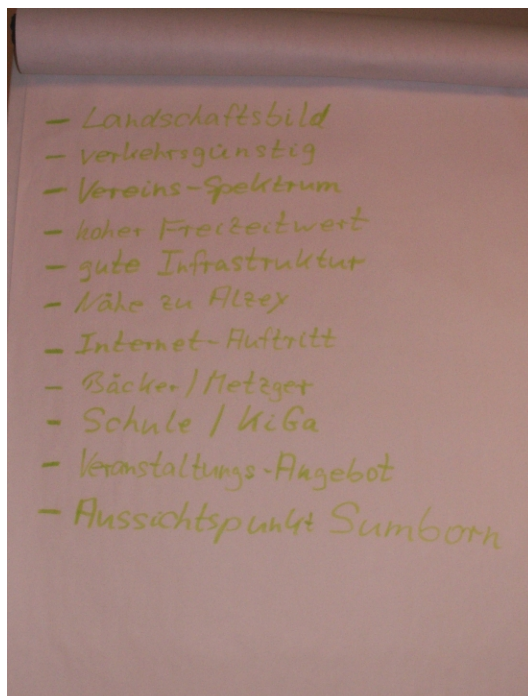 - Landschaftsbild
- verkehrsgünstig
- Vereins-Spektrum
- hoher Freizeitwert
- gute Infrastruktur
- Nähe zu Alzey
- Internet-Auftritt
- Bäcker/Metzger
- Schule / KiGa
- Veranstaltungs-Angebot
- Aussichtspunkt Sumborn